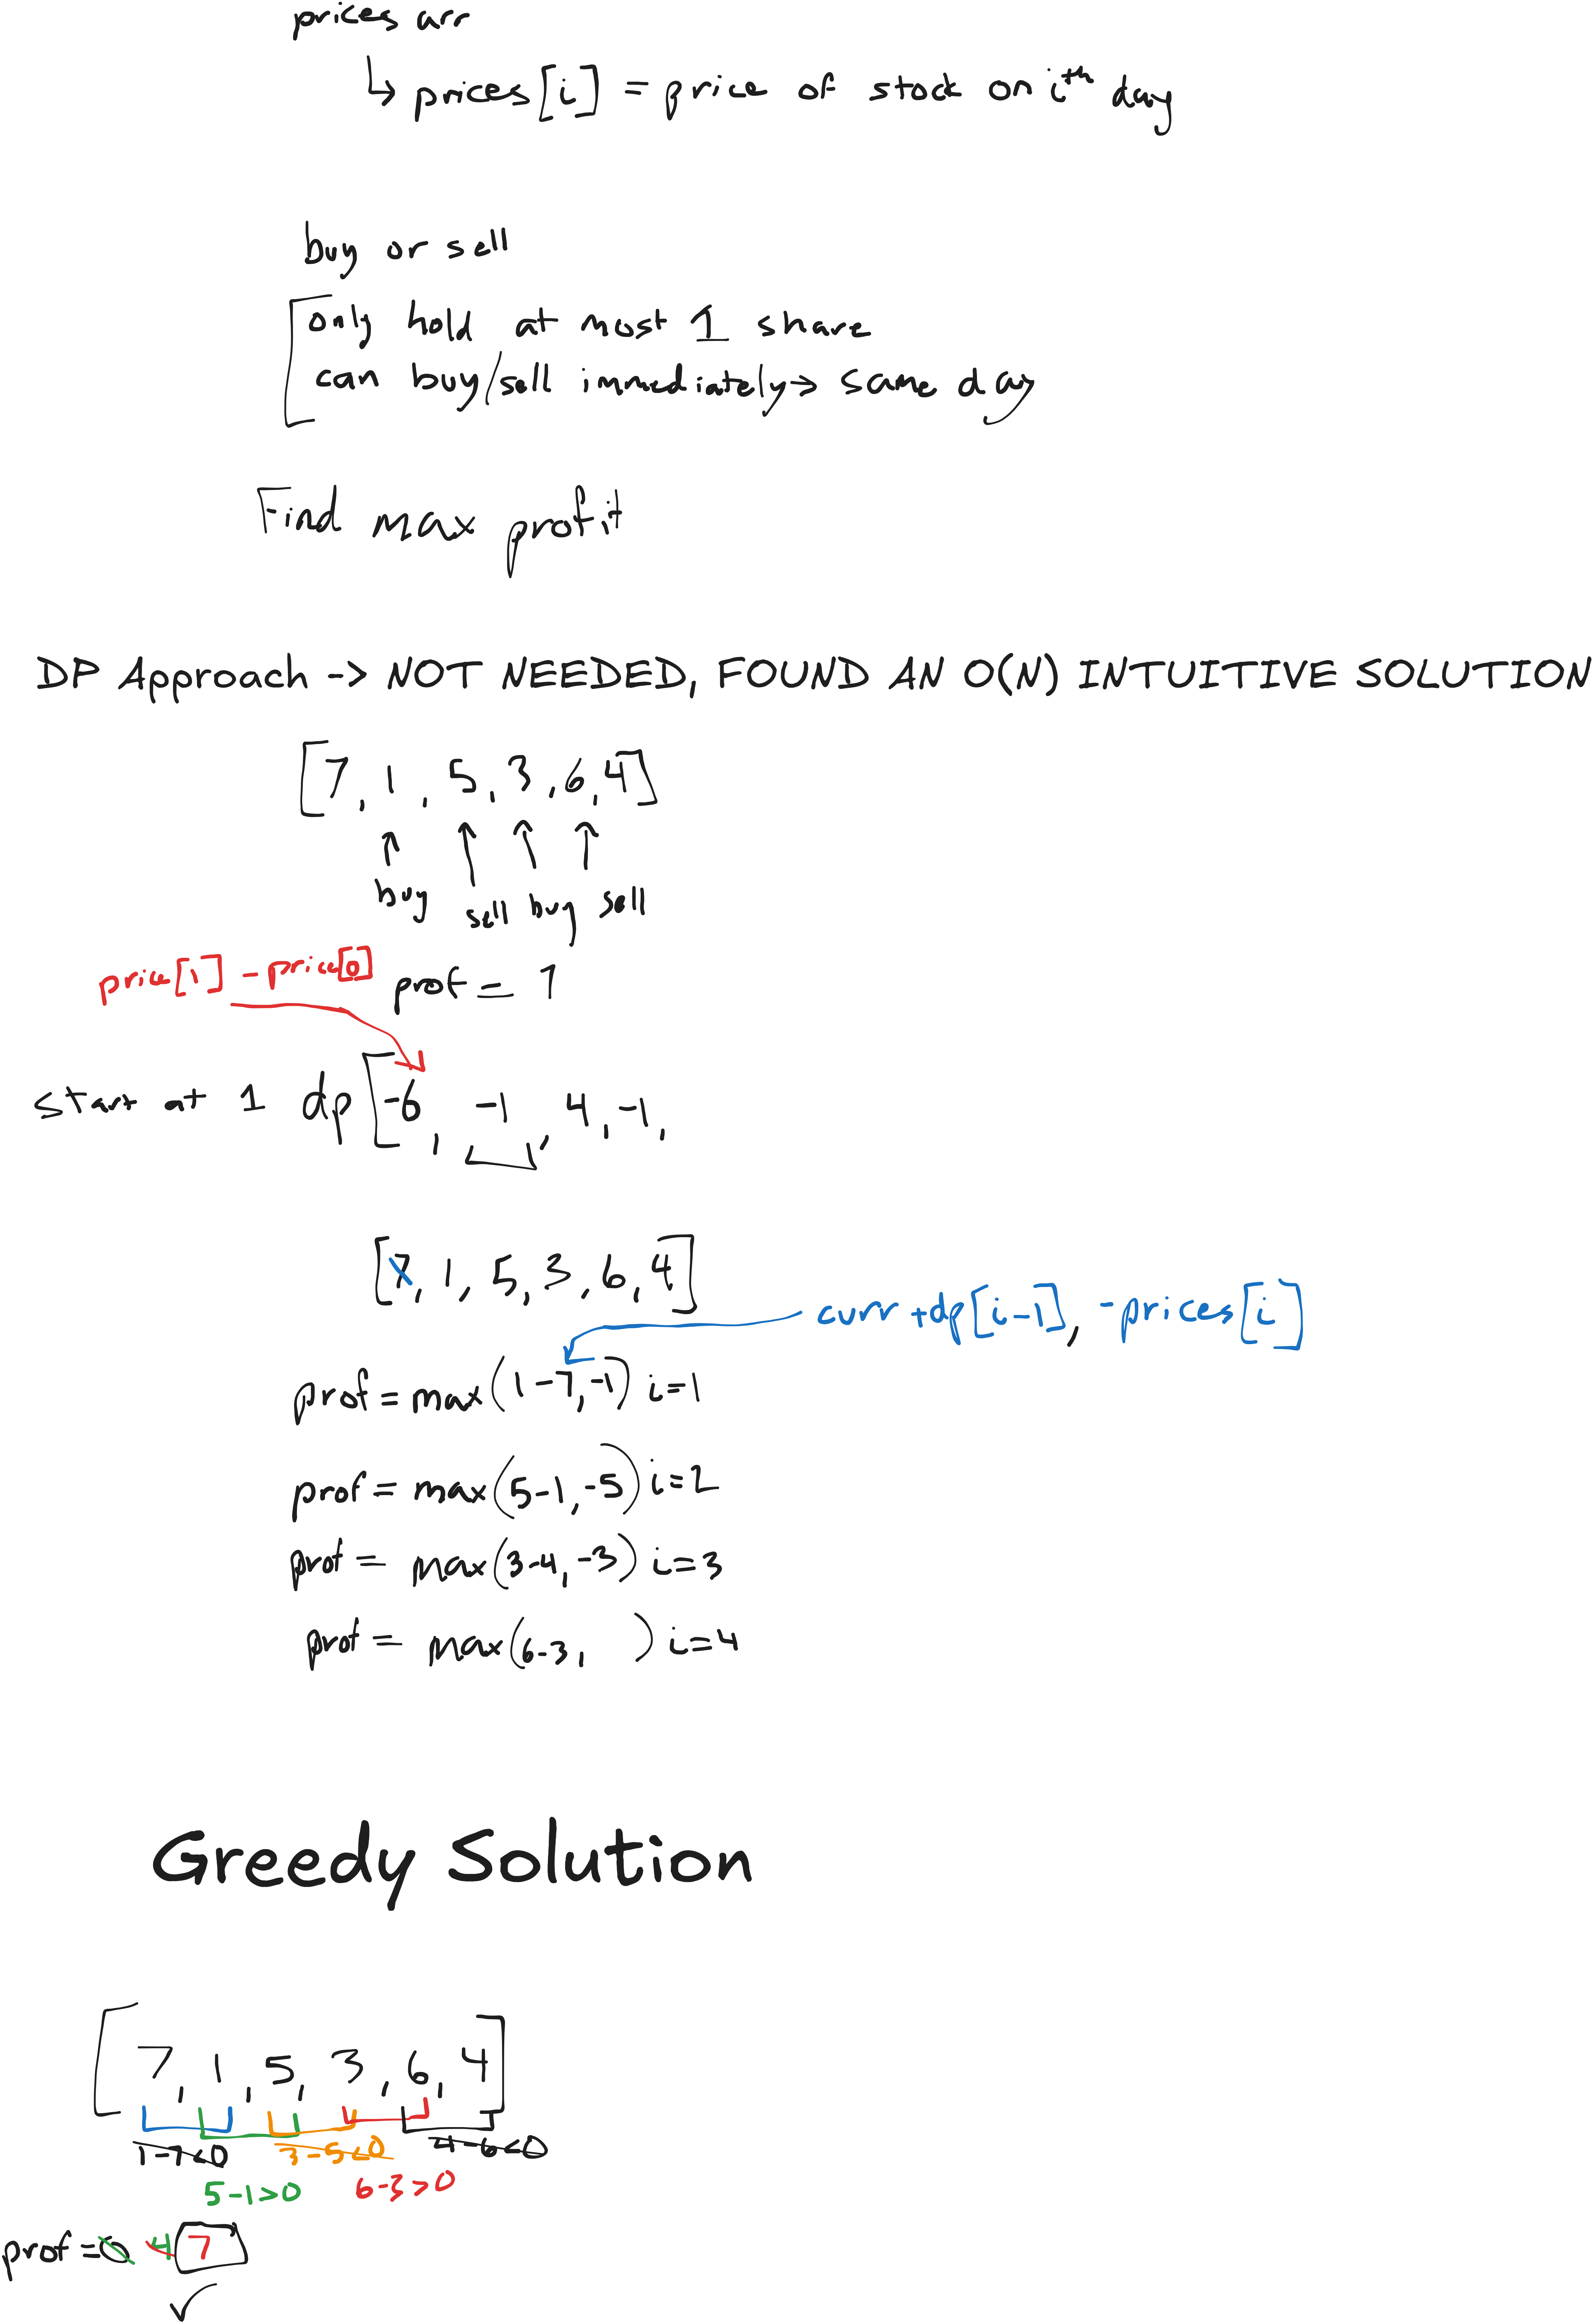 prices arr
↳ prices[i] = price of stock on iᵗʰ day
buy or sell
only hold at most 1 share
can buy/sell immediately → same day
Find max profit
DP Approach -> NOT NEEDED, FOUND AN O(N) INTUITIVE SOLUTION
[7, 1, 5, 3, 6, 4]
buy sell buy sell
price[i] - price[0]
prof = 7
start at 1 dp [-6, -1, 4, -1,
[7, 1, 5, 3, 6, 4]
curr + dp[i-1], -prices[i]
prof = max(1-7, -1) i=1
prof = max(5-1, -5) i=2
prof = max(3-4, -3) i=3
prof = max(6-3, ) i=4
Greedy Solution
[7, 1, 5, 3, 6, 4]
1-7<0 3-5<0 4-6<0
5-1>0 6-3>0
prof = 0 4 7
✓